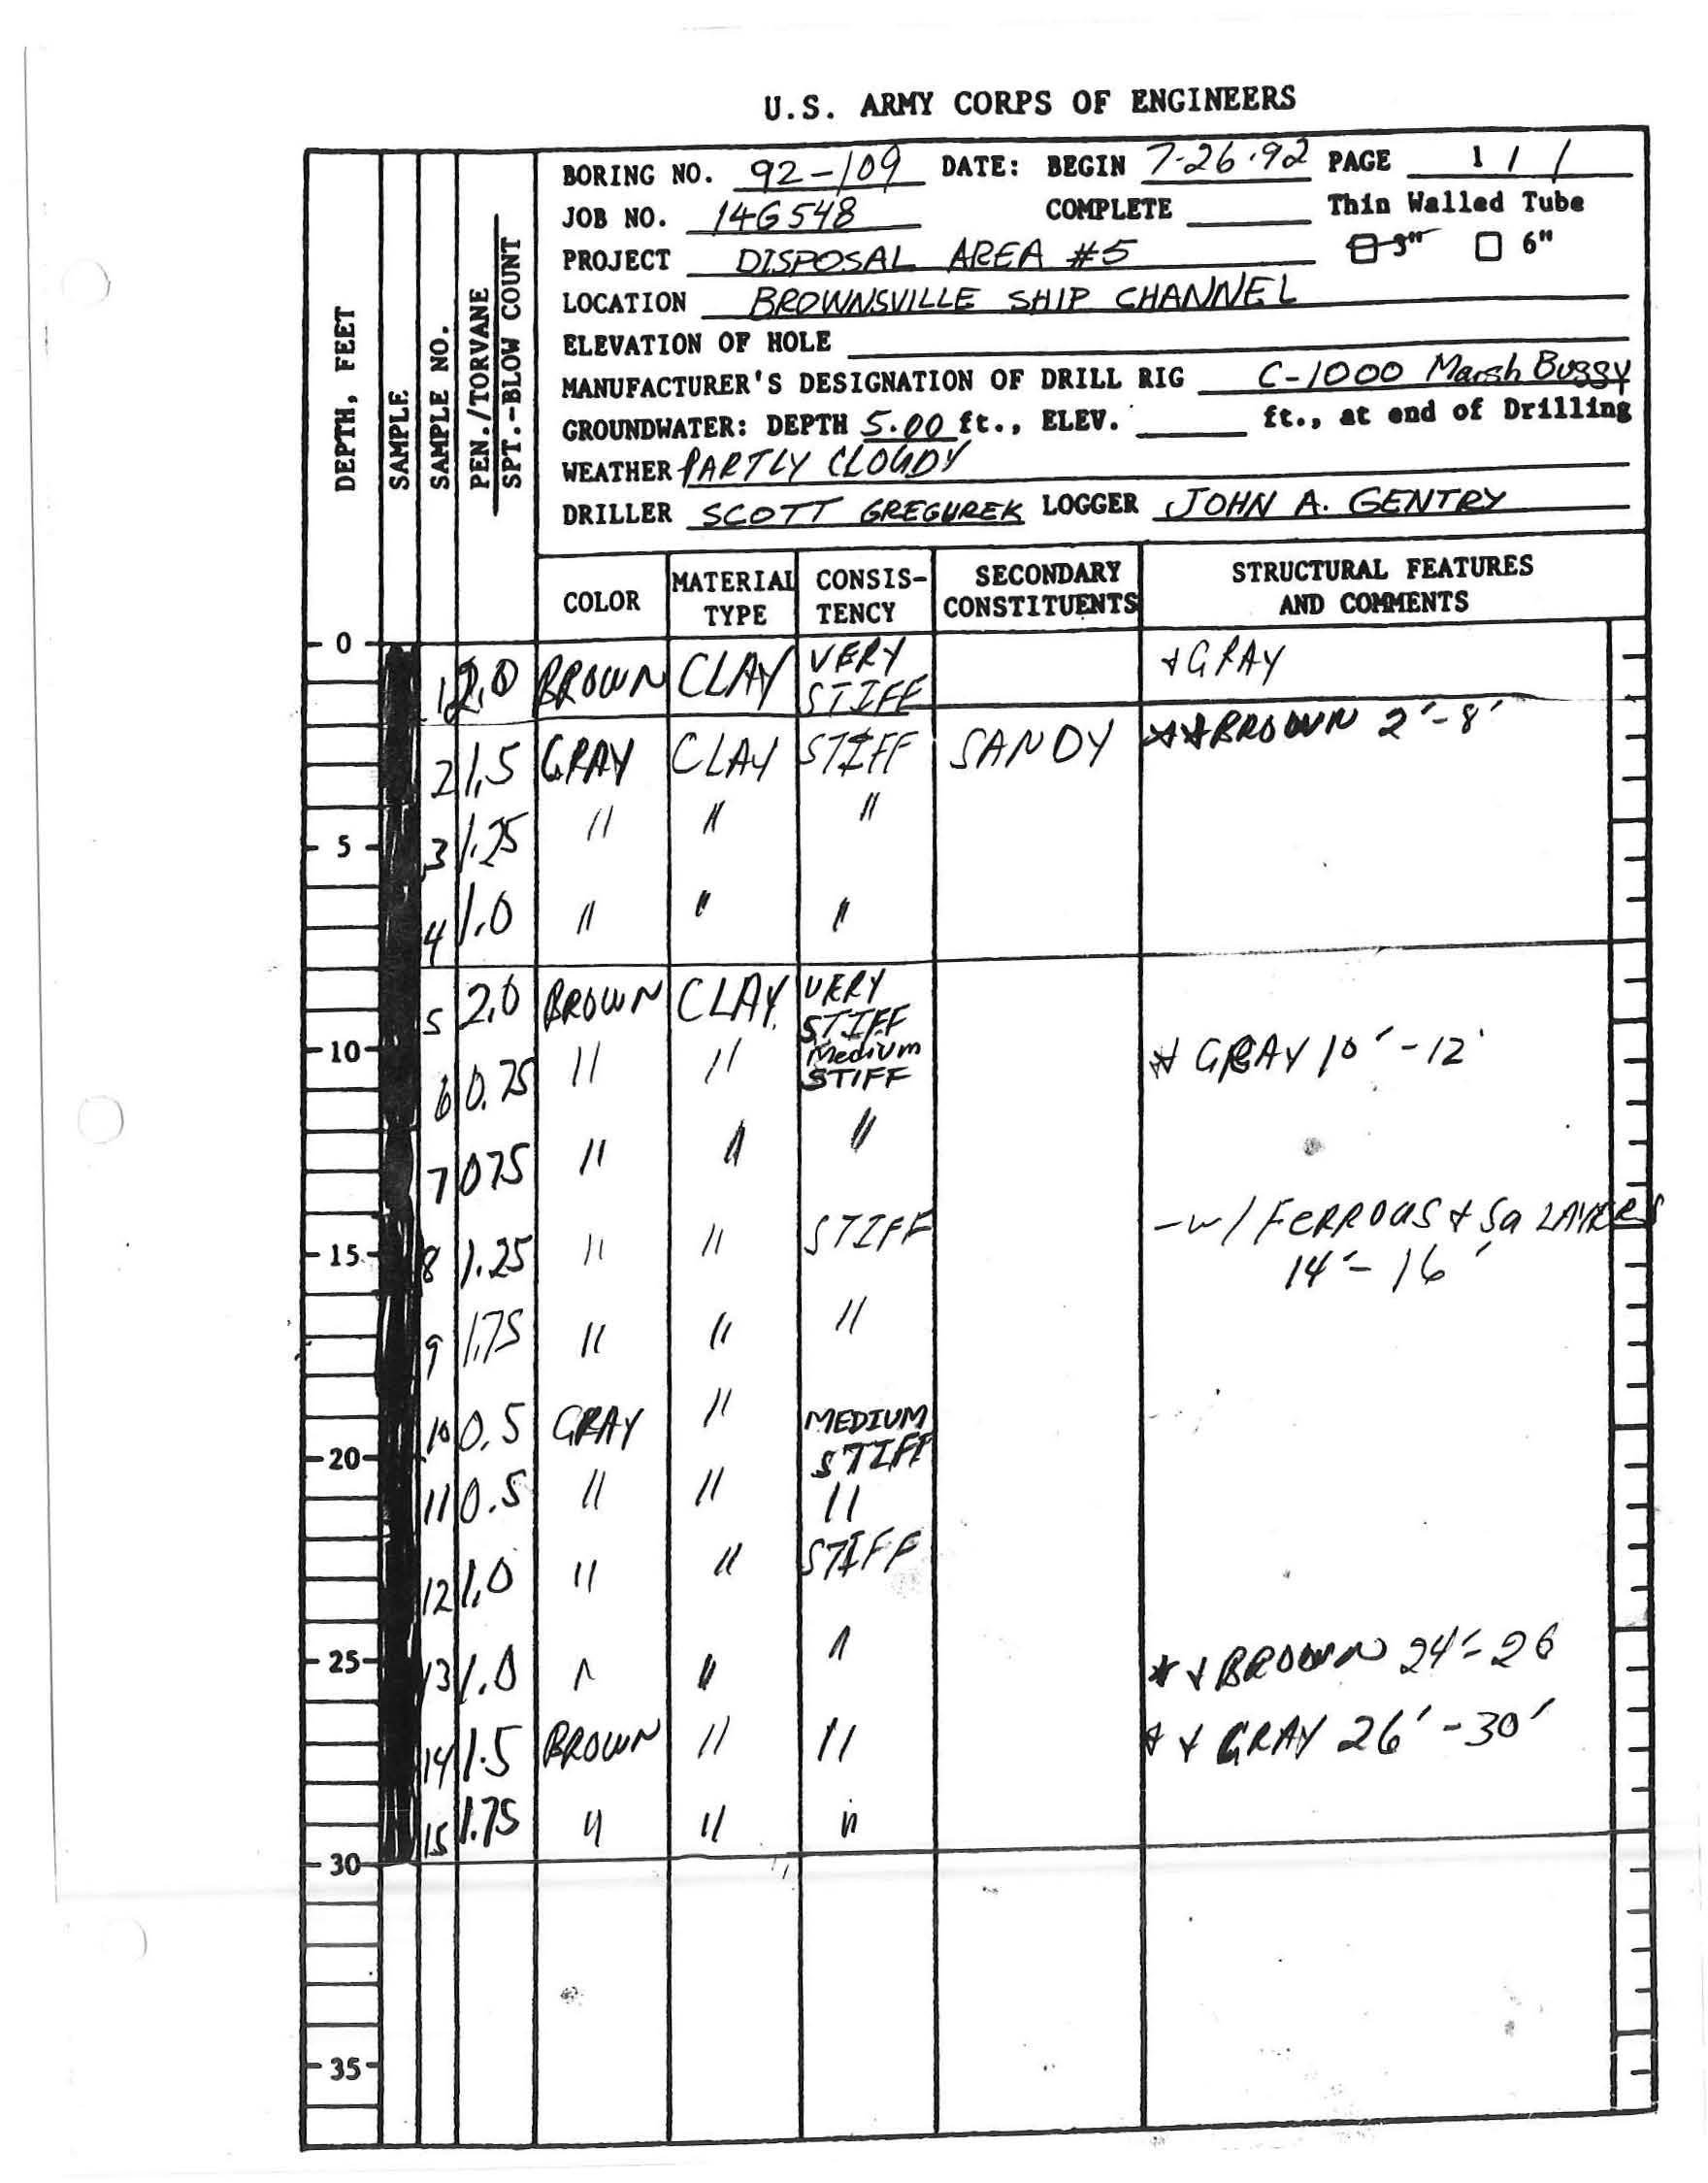 U.S. ARMY CORPS OF ENGINEERS
BORING NO. 92-109 DATE: BEGIN 7-26-92 PAGE 1 / 1
JOB NO. 14G548 COMPLETE Thin Walled Tube
PROJECT DISPOSAL AREA #5 3" 6"
LOCATION BROWNSVILLE SHIP CHANNEL
ELEVATION OF HOLE
MANUFACTURER'S DESIGNATION OF DRILL RIG C-1000 Marsh Buggy
GROUNDWATER: DEPTH 5.00 ft., ELEV. ft., at end of Drilling
WEATHER PARTLY CLOUDY
DRILLER SCOTT GREGUREK LOGGER JOHN A. GENTRY
DEPTH, FEET
SAMPLE
SAMPLE NO.
PEN./TORVANE
SPT.-BLOW COUNT
COLOR MATERIAL TYPE CONSIS-TENCY SECONDARY CONSTITUENTS STRUCTURAL FEATURES AND COMMENTS
0
1 2.0 BROWN CLAY VERY STIFF + GRAY
2 1.5 GRAY CLAY STIFF SANDY * + BROWN 2'-8'
5 3 1.25 " " "
4 1.0 " " "
5 2.0 BROWN CLAY VERY STIFF
10 6 0.75 " " Medium STIFF * GRAY 10'-12'
7 075 " " "
15 8 1.25 " " STIFF -w/ FERROUS + Sa LAYERS
14'-16'
9 1.75 " " "
10 0.5 GRAY " MEDIUM STIFF
20
11 0.5 " " "
12 1.0 " " STIFF
25 13 1.0 " " " * + BROWN 24'-26
14 1.5 BROWN " " * + GRAY 26'-30'
15 1.75 " " "
30
35